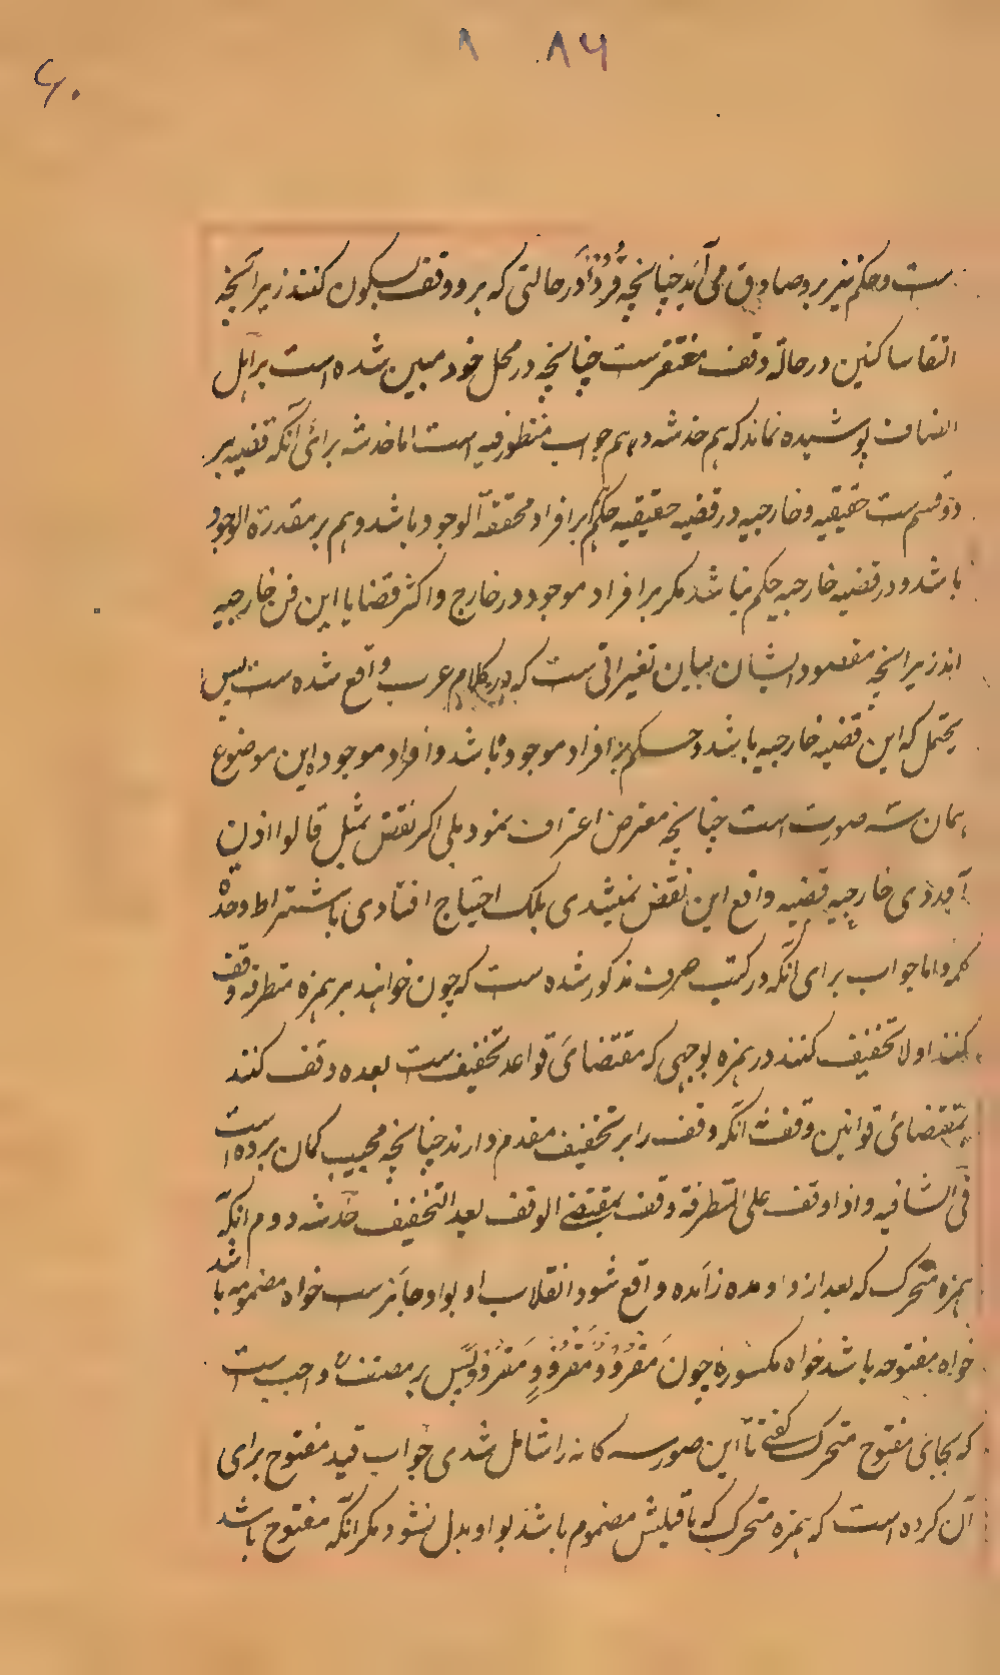 ۸ ۸۶
۶۰
ست و حکم نیز برو صادق می آید چنانچه قروءٌ در حالتی که برو وقف بسکون کنند زیرا نچه
التقا ساکنین در حالة وقف مغتفرست چنانچه در محل خود مبین شده است بر اهل
انصاف پوشیده نماند که هم خدشه و هم جواب منظور فیه است اما خدشه برای آنکه قضیه بر
دو قسم ست حقیقیه و خارجیه در قضیه حقیقیه حکم بر افراد محققة الوجود باشد و هم بر مقدرة الوجود
باشد و در قضیه خارجیه حکم نباشد مگر بر افراد موجود در خارج و اکثر قضایا این فن خارجیه
اند زیرا نچه مقصود ایشان بیان تغیراتی ست که در کلام عرب واقع شده ست پس
یحتمل که این قضیه خارجیه باشد و حکم بر افراد موجوده باشد و افراد موجوده این موضوع
همان سه صورت است چنانچه معترض اعتراف نمود بلی اگر نقض بمثل قالوا اذن
آوردی خارجیه قضیه واقع این نقض نمیشدی بلک احتیاج افتادی باشتراط وحدة
کلمه و اما جواب برای آنکه در کتب صرف مذکور شده ست که چون خواهند بر همزه متطرفه وقف
کنند اولا تخفیف کنند در همزه بوجهی که مقتضای قواعد تخفیف ست بعده وقف کنند
بمقتضائ قوانین وقف نه آنکه وقف را بر تخفیف مقدم دارند چنانچه مجیب گمان برده است
فی الشافیه و اذا وقف علی المتطرفة وقف بمقتضی الوقف بعد التخفیف خدشه دوم آنکه
همزه متحرک که بعد از واو مده زائده واقع شود انقلاب او بواو جائزست خواه مضمومه باشد
خواه مفتوحه باشد خواه مکسوره چون مقروٌّ و مقروٍّ و مقروًّ پس بر مصنف واجب ست
که بجای مفتوح متحرک گفتی تا این صور سه گانه را شامل شدی جواب قید مفتوح برای
آن کرده است که همزه متحرک که ما قبلش مضموم باشد بواو بدل نشود مگر آنکه مفتوح باشد